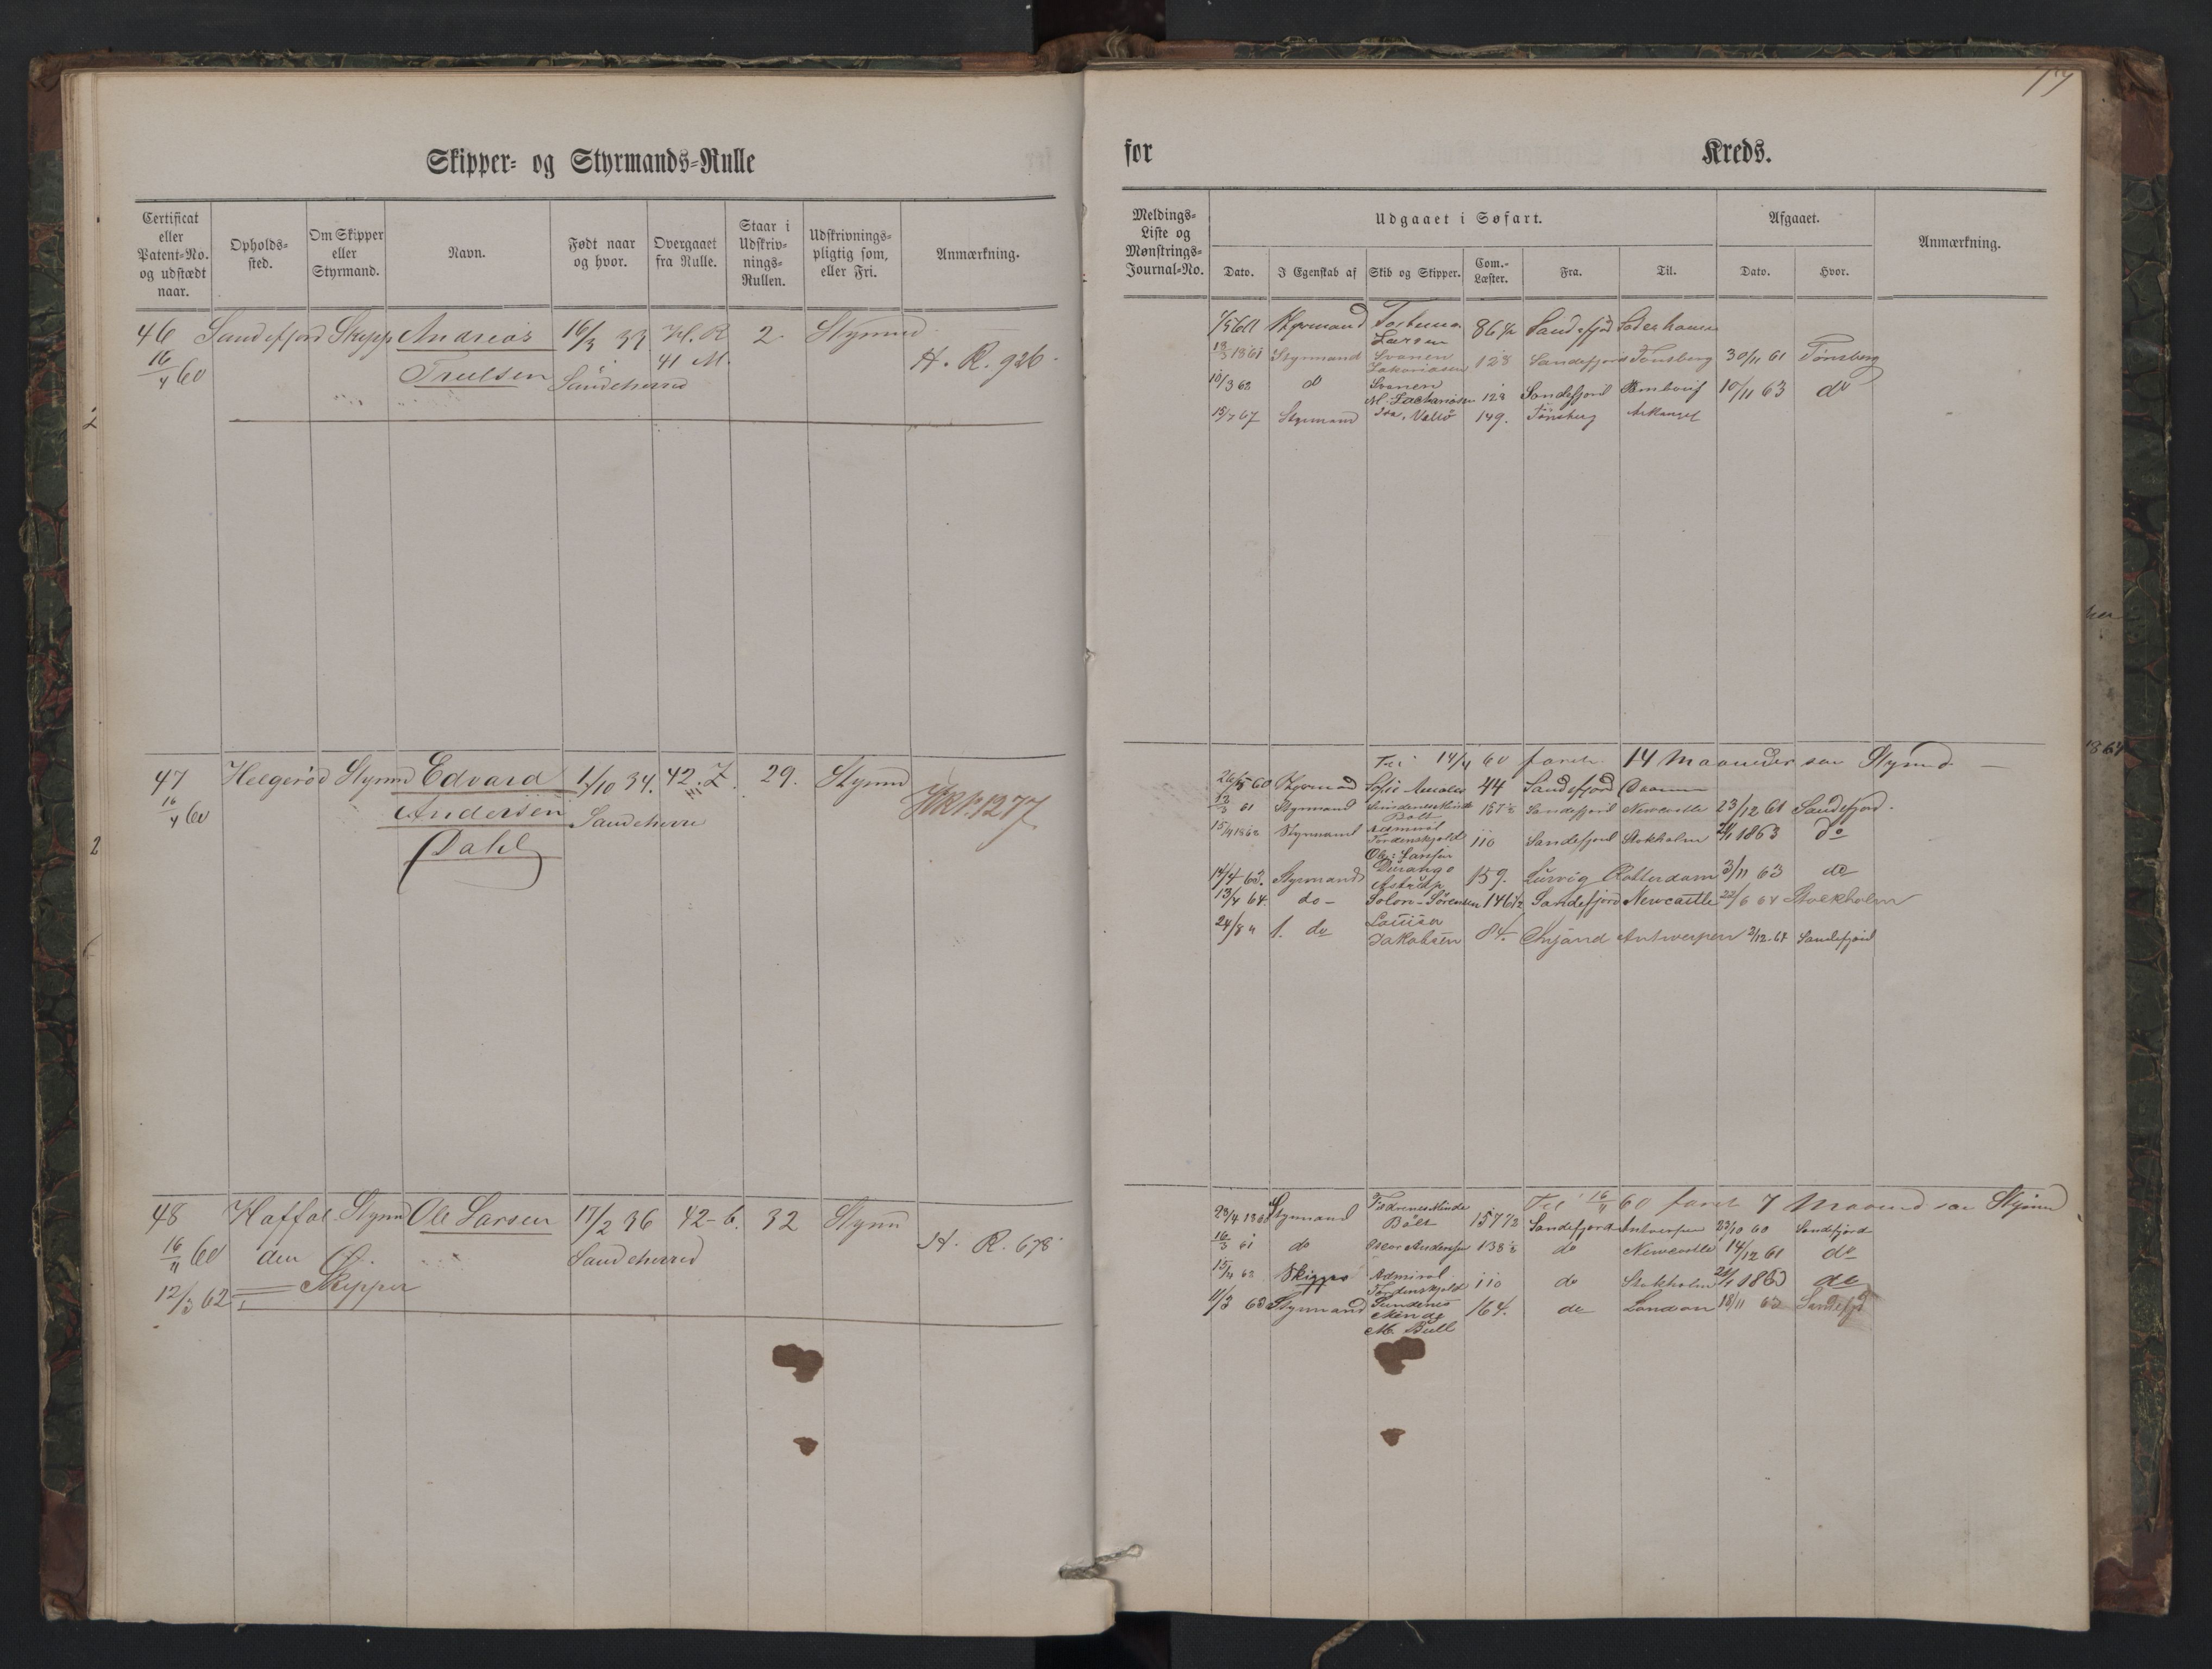 Skipper- og Styrmands-Rulle
Certificat eller Patent-No. og udstædt naar.
Opholds-sted.
Om Skipper eller Styrmand.
Navn.
Født naar og hvor.
Overgaaet fra Rulle.
Staar i Udskriv-nings-Rullen.
Udskrivnings-pligtig som, eller Fri.
Anmærkning.
46 Sandefjord Skipp Andreas 16/3 33 H. R 2. Stymd
16/4 60 Truelsen Sandeherred 41 M. H. R. 926.
47 Helgerød Stymd Edvard 1/10 34. 42. Z. 29. Stymd
16/4 60 Andersen Sandeherre 1277
Dahl
48 Haffal Stymd Ole Larsen 17/2 36 42-6. 32 Stym
16/4 60 den Sandeherred H. R. 678
12/3 62 Skipper
for Kreds.
Meldings-Liste og Mønstrings-Journal-No.
Udgaaet i Søfart.
Afgaaet.
Anmærkning.
Dato.
I Egenskab af
Skib og Skipper.
Com.-Læster.
Fra.
Til.
Dato.
Hvor.
Styrmand Fortuna 86½ Sandefjord Søderhamn
Larsen
1861 Styrmand Svanen 128 Sandefjord Tønsberg 30/11 61 Tønsberg
Zakariasen
10/3 62 do Svanen 128 Sandefjord 10/11 63 do
M. Zachariasen
15/7 67 Styrmand Vallø 149. Tønsberg Arkangel
14/4 60 faret 14 Maaneder som Stymd
26/5 60 Styrmand Sofie Amalie 44 Sandefjord
12/3 61 Styrmand 157½ Sandefjord Newcastle 23/12 61 Sandefjord.
Bolt
15/4 1862 Styrmand Admiral Tordenskjold 110 Sandefjord Stokholm 1863 do
Ole Larsen
14/4 63. Styrmand Durango 159. Lurvig Rotterdam 3/11 63 do
Astrup
13/4 64. do - Solon - Sørensen 146½ Sandefjord Newcastle 22/6 64 Stockholm
24/8 " 1. do Louisa
Jakobsen 84. Antwerpen 2/12. 64 Sandefjord
Til 16/4 60 faret 7 Maaned som Stymd
23/4 1860 Styrmand Bolt 157½ Sandefjord Antwerpen 23/10 60 Sandefjord
16/3 61 do Oscar Andersen 138½ do Newcastle 14/12 61 do
15/4 62 Skipper Admiral Tordenskjold 110 do Stokholm 1863 do
11/3 63 Styrmand 164. do London 18/11 63 Sandefjd
Minde
M. Bull